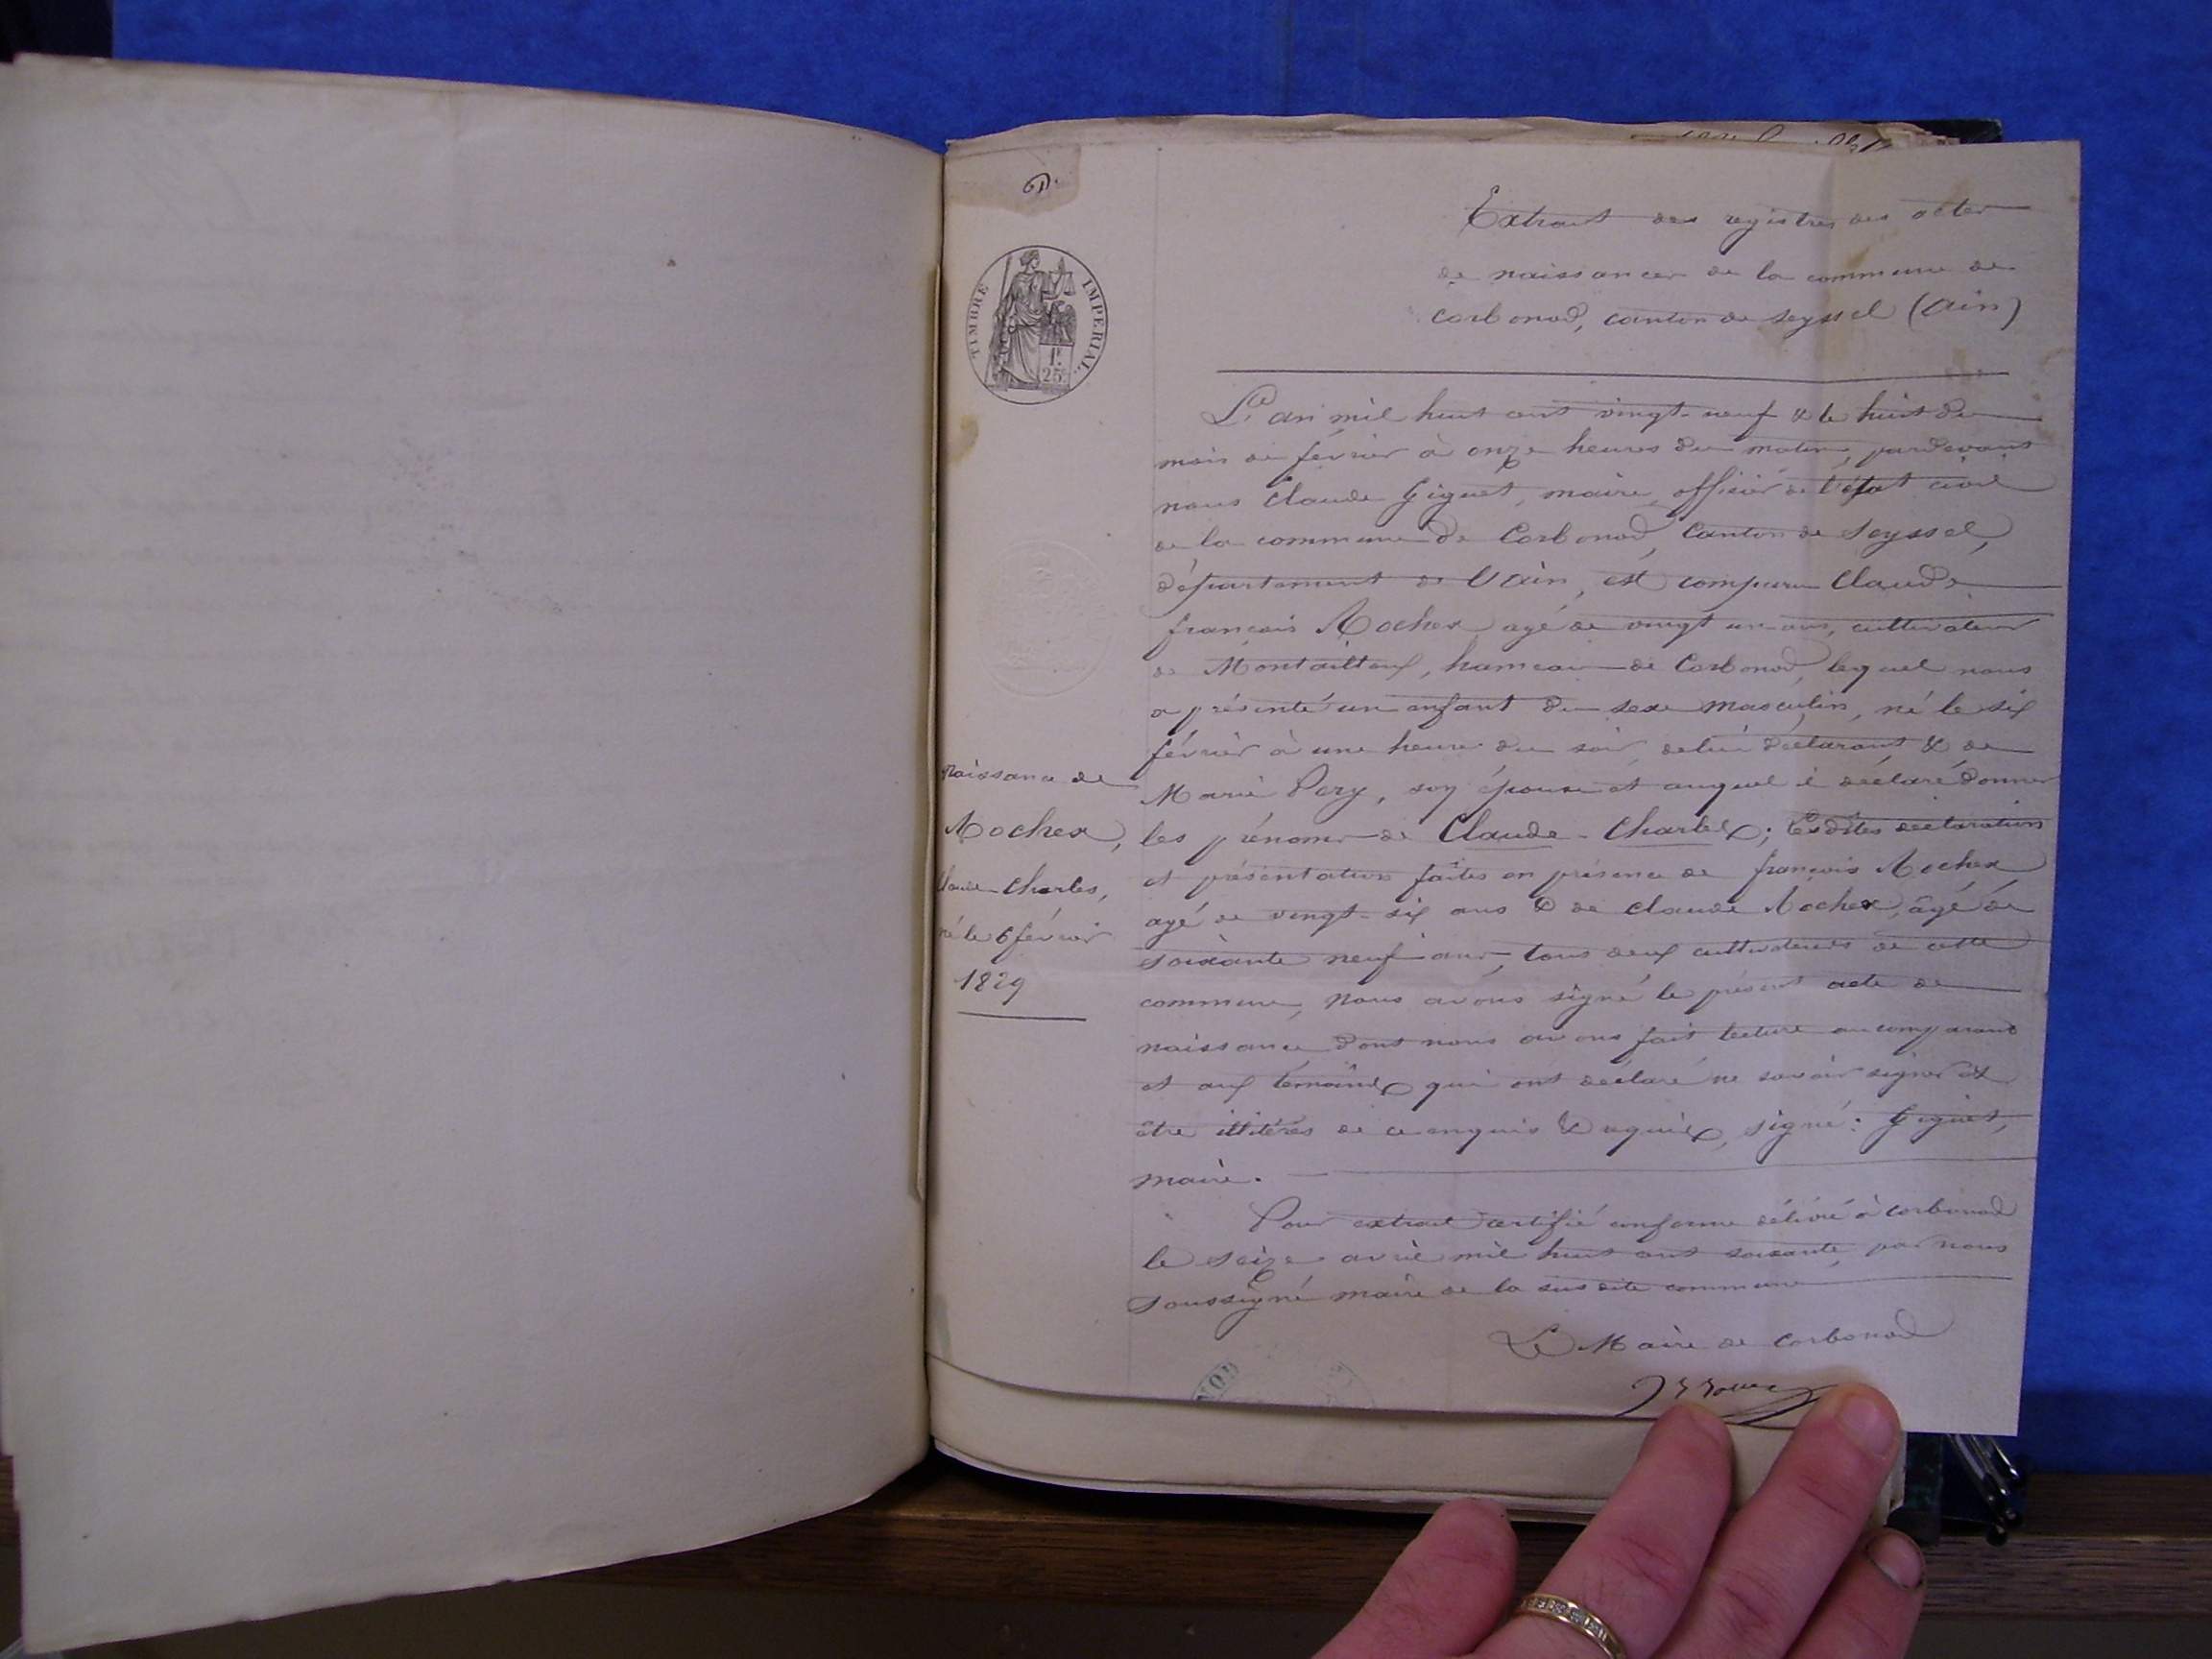 Extrait des registres des actes
de naissances de la commune de
Corbonod, canton de Seyssel (Ain)
TIMBRE IMPERIAL
1f.
25c
L'an mil huit cent vingt-neuf & le huit du
mois de février à onze heures du matin, pardevant
nous Claude Giguet, maire, officier de l'état civil
de la commune de Corbonod, Canton de Seyssel,
département de l'Ain, est comparu Claude
françois Rochex agé de vingt un ans, cultivateur
de hameau de Corbonod, lequel nous
a présenté un enfant du sexe masculin, né le six
février à une heure du soir de lui déclarant & de
Marie Pery, son épouse et auquel il déclaré donner
les prénoms de Claude-Charles; Lesdites déclaration
et présentation faites en présence de françois Rochex
agé de vingt-six ans & de Claude Rochex, âgé de
soixante neuf ans, tous deux cultivateurs de cette
commune, nous avons signé le présent acte de
naissance dont nous avons fait lecture au comparant
et aux témoins qui ont déclaré ne savoir signer et
être illitérés de ce enquis & requis, signé: Giguet,
maire.
Naissance de
Rochex,
Claude-Charles,
né le 6 février
1829
Pour extrait certifié conforme délivré à Corbonod
le seize avril mil huit cent soixante, par nous
soussigné maire de la susdite commune
Le Maire de Corbonod
NOD